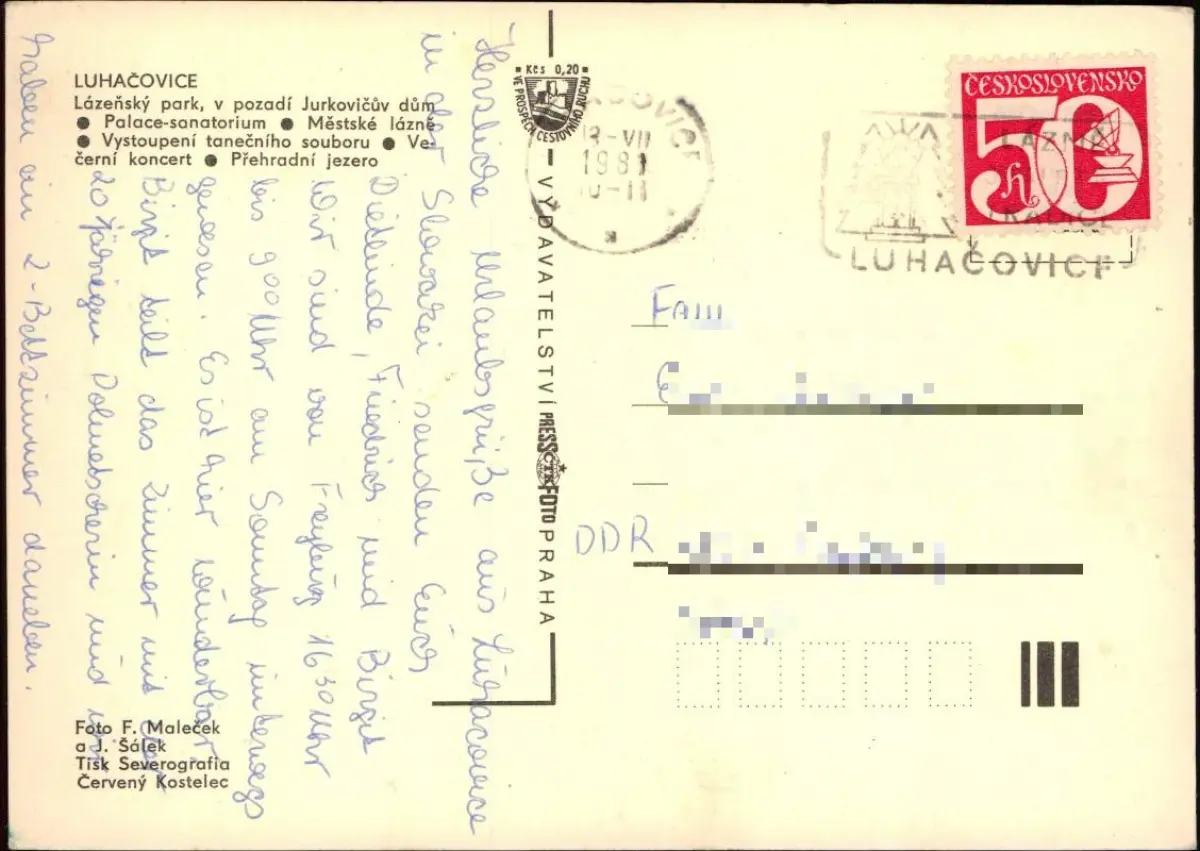 LUHAČOVICE
Lázeňský park, v pozadí Jurkovičův dům
● Palace-sanatorium ● Městské lázně
● Vystoupení tanečního souboru ● Ve-
černí koncert ● Přehradní jezero
Herzliche Urlaubsgrüße aus Luhacovice
in der Slowakei senden Euch
Dietlinde, Friedrich und Birgit
Wir sind von Freytag 16 30 Uhr
bis 900 Uhr am Sonntag unterwegs
gewesen. Es ist hier wunderbar.
Birgit teilt das Zimmer mit der
20 jährigen Dolmetscherin und wir
haben ein 2-Bettzimmer daneben.
Foto F. Maleček
a J. Šálek
Tisk Severografia
Červený Kostelec
Kčs 0,20
VE PROSPĚCH CESTOVNÍHO RUCHU
VYDAVATELSTVÍ PRESSFOTO PRAHA
ČTK
VII
1981
ČESKOSLOVENSKO
50 h
LÁZNĚ
TRADICE
LUHAČOVICE
Fam
DDR